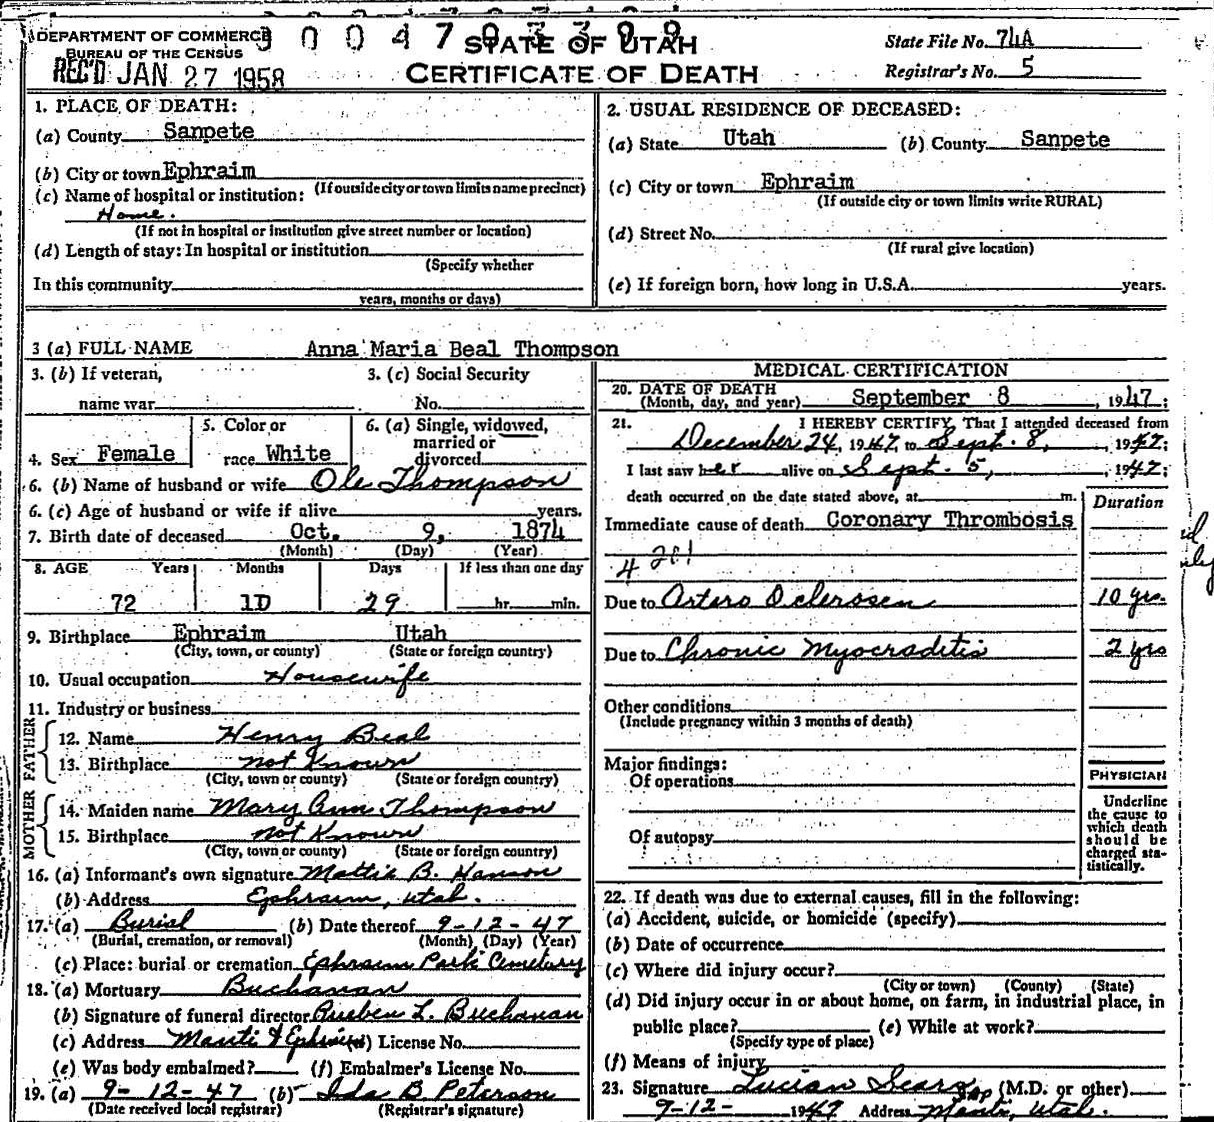 DEPARTMENT OF COMMERCE
BUREAU OF THE CENSUS
REC'D JAN 27 1958
STATE OF UTAH
CERTIFICATE OF DEATH
State File No. 74A
Registrar's No. 5
1. PLACE OF DEATH:
(a) County Sanpete
(b) City or town Ephraim
(If outside city or town limits name precinct)
(c) Name of hospital or institution:
Home.
(If not in hospital or institution give street number or location)
(d) Length of stay: In hospital or institution
(Specify whether
In this community
years, months or days)
2. USUAL RESIDENCE OF DECEASED:
(a) State Utah (b) County Sanpete
(c) City or town Ephraim
(If outside city or town limits write RURAL)
(d) Street No.
(If rural give location)
(e) If foreign born, how long in U.S.A. years.
3 (a) FULL NAME Anna Maria Beal Thompson
3. (b) If veteran,
name war
3. (c) Social Security
No.
4. Sex Female
5. Color or
race White
6. (a) Single, widowed,
married or
divorced
6. (b) Name of husband or wife Ole Thompson
6. (c) Age of husband or wife if alive years.
7. Birth date of deceased Oct. 9, 1874
(Month) (Day) (Year)
8. AGE Years Months Days If less than one day
72 10 29 hr. min.
9. Birthplace Ephraim Utah
(City, town, or county) (State or foreign country)
10. Usual occupation Housewife
11. Industry or business
FATHER
12. Name Henry Beal
13. Birthplace not Known
(City, town or county) (State or foreign country)
MOTHER
14. Maiden name Mary Ann Thompson
15. Birthplace not Known
(City, town or county) (State or foreign country)
16. (a) Informant's own signature Mattie B. Hanson
(b) Address Ephraim, Utah.
17. (a) Burial (b) Date thereof 9-12-47
(Burial, cremation, or removal) (Month) (Day) (Year)
(c) Place: burial or cremation Ephraim Park Cemetary
18. (a) Mortuary Buchanan
(b) Signature of funeral director Rueben L. Buchanan
(c) Address Manti & Ephraim (d) License No.
(e) Was body embalmed? (f) Embalmer's License No.
19. (a) 9-12-47 (b) Ida B. Peterson
(Date received local registrar) (Registrar's signature)
MEDICAL CERTIFICATION
20. DATE OF DEATH
(Month, day, and year) September 8, 1947;
21. I HEREBY CERTIFY, That I attended deceased from
December 24, 1947 to Sept. 8, 1947;
I last saw her alive on Sept. 5, 1947;
death occurred on the date stated above, at m.
Duration
Immediate cause of death Coronary Thrombosis
4201
Due to Artero Sclerosen 10 yrs.
Due to Chronic Myocraditis 2 yrs
Other conditions
(Include pregnancy within 3 months of death)
Major findings:
Of operations
Of autopsy
PHYSICIAN
Underline
the cause to
which death
should be
charged sta-
tistically.
22. If death was due to external causes, fill in the following:
(a) Accident, suicide, or homicide (specify)
(b) Date of occurrence
(c) Where did injury occur?
(City or town) (County) (State)
(d) Did injury occur in or about home, on farm, in industrial place, in
public place? (e) While at work?
(Specify type of place)
(f) Means of injury
23. Signature Lucian Sears (M.D. or other)
9-12- 1947 Address Manti, Utah.